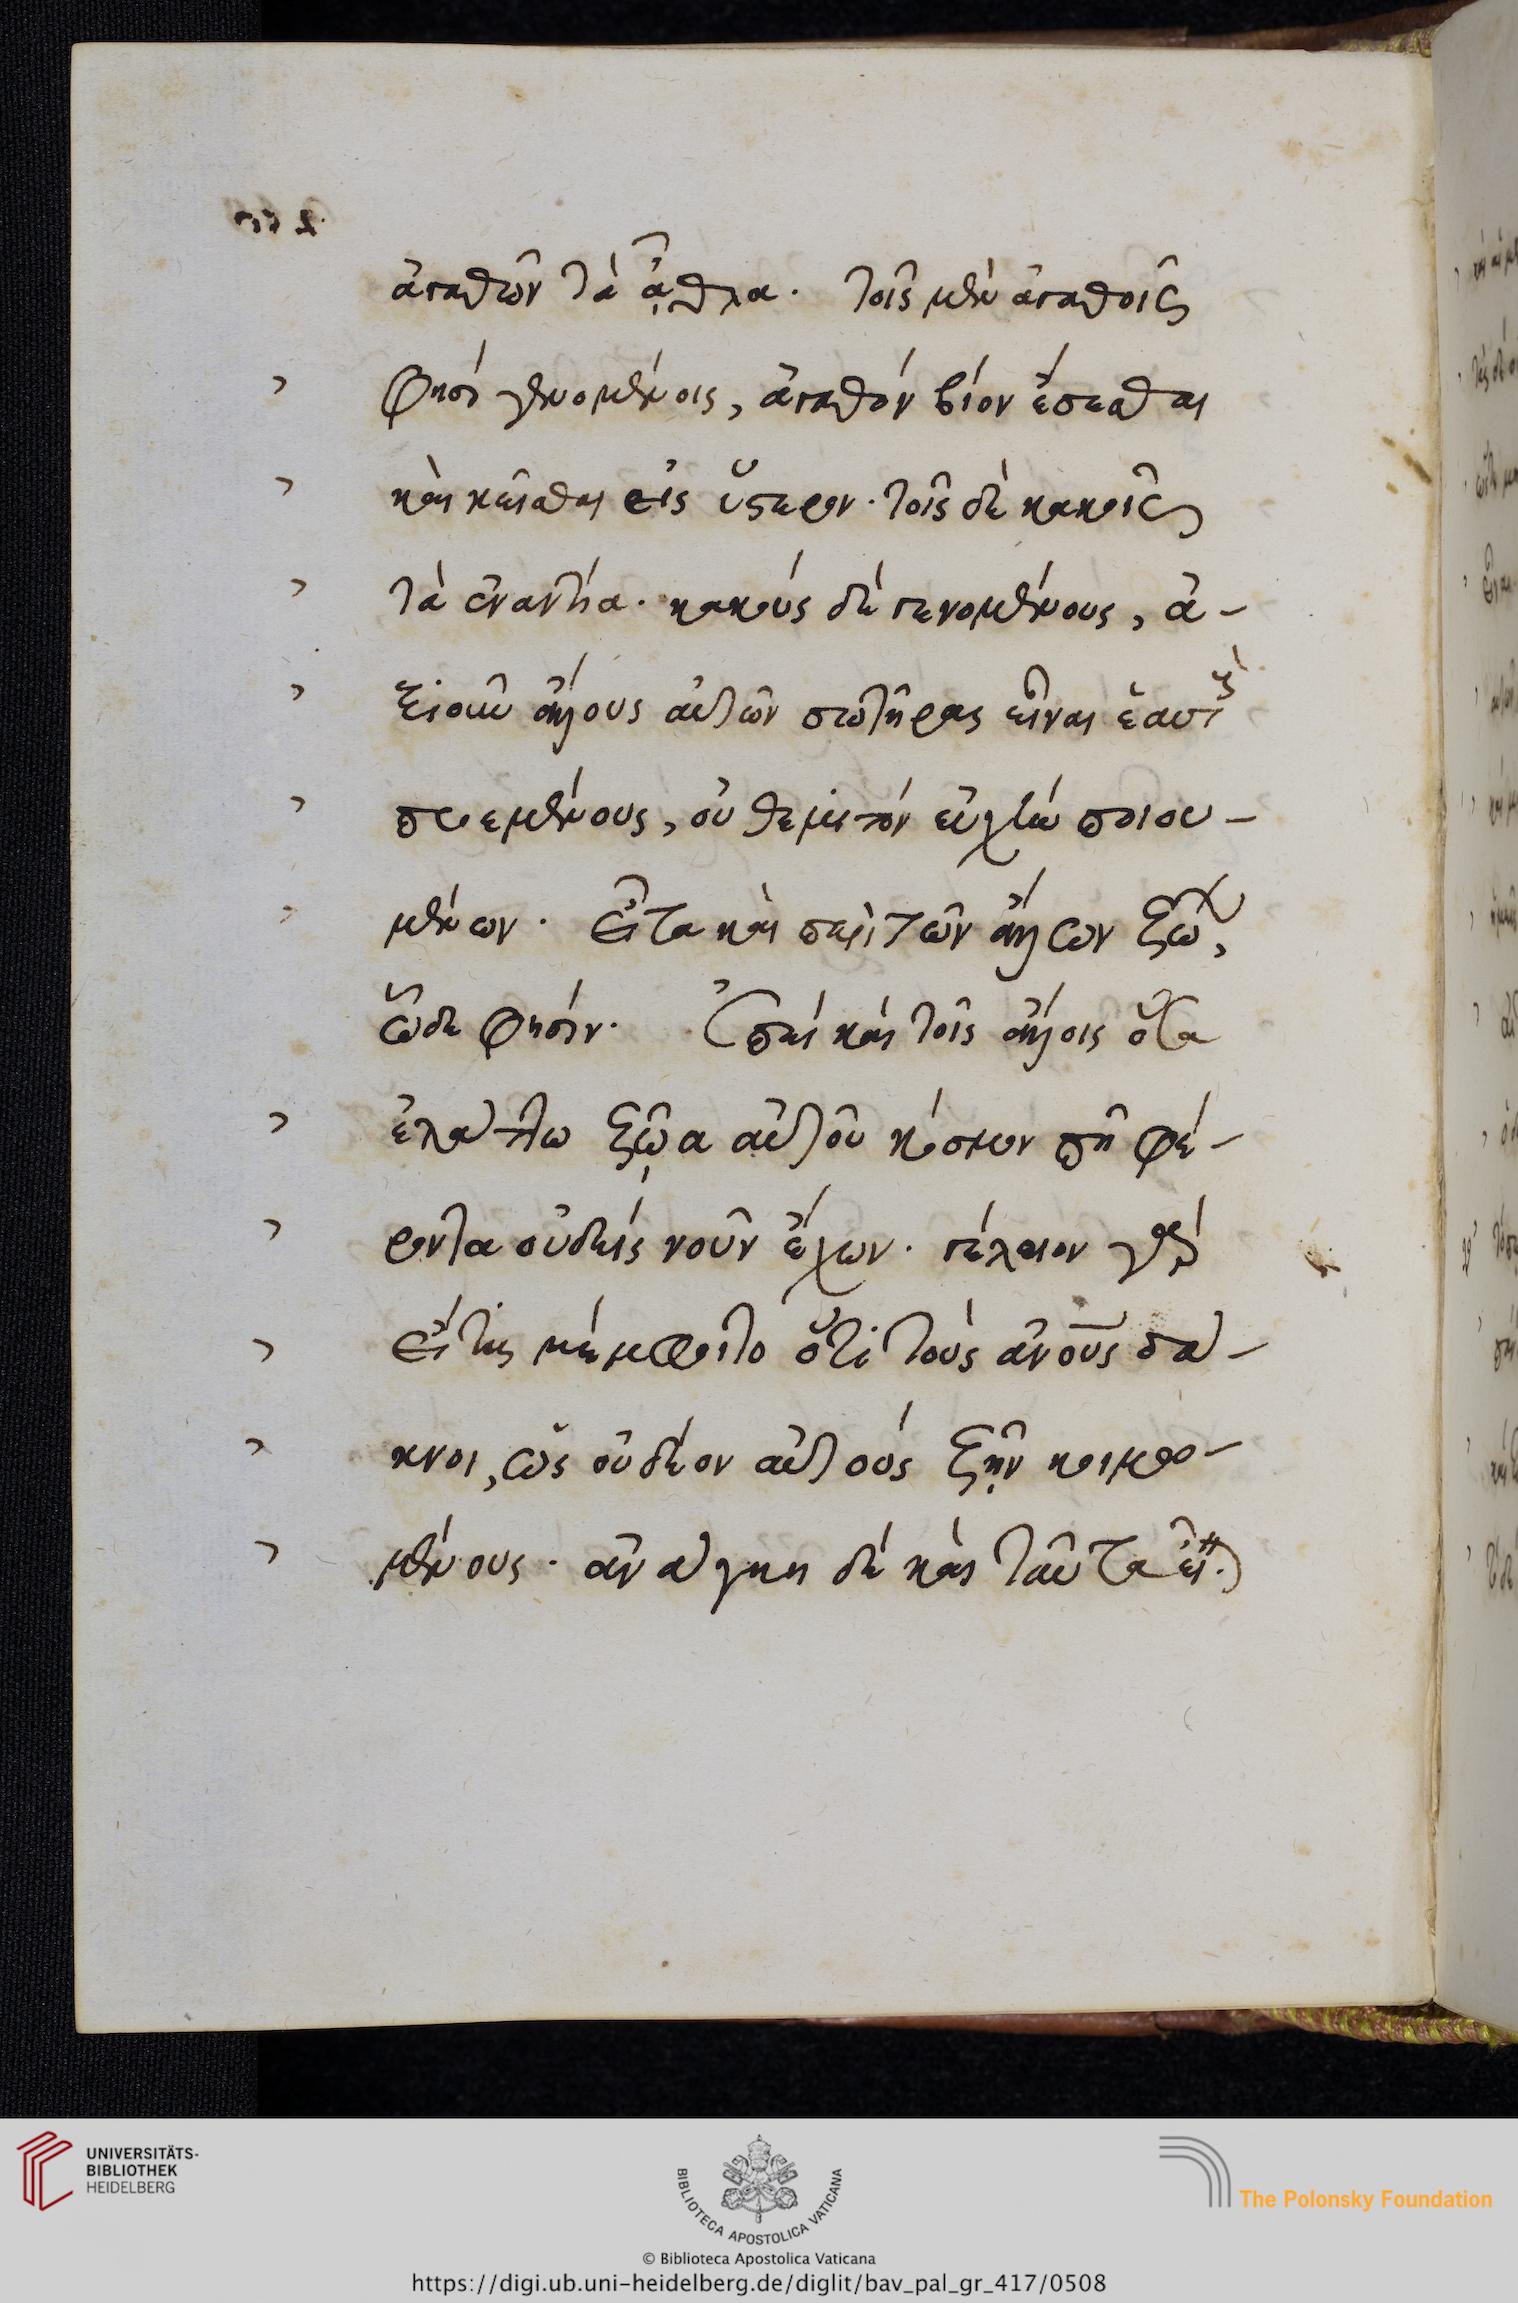 ἀγαθῶν τὰ ἆθλα. τοῖς μὲν ἀγαθοῖς
φησὶ γενομένοις, ἀγαθὸν βίον ἔσεσθαι
καὶ κεῖσθαι εἰς ὕστερον. τοῖς δὲ κακοῖς
τὰ ἐναντία. κακοὺς δὲ γενομένους, ἀ-
ξιοῦν ἄλλους αὐτῶν σωτῆρας εἶναι ἑαυτοὺς
προεμένους, οὐ θεμιτὸν εὐχὴν ποιου-
μένων. Εἶτα καὶ περὶ τῶν ἄλλων ζώων,
ὧδε φησίν. Ἐπεὶ καὶ τοῖς ἄλλοις ὅσα
ἐλάττω ζῷα αὐτοῦ κόσμον γῆ φέ-
ροντα οὐδεὶς νοῦν ἔχων. γέλοιον γὰρ
εἴ τις μέμφοιτο ὅτι τοὺς ἀνους δά-
κνοι, ὡς οὐ δέον αὐτοὺς ζῆν κοιμω-
μένους. ἀνάγκη δὲ καὶ ταῦτα εἶναι.
UNIVERSITÄTS-
BIBLIOTHEK
HEIDELBERG
BIBLIOTECA APOSTOLICA VATICANA
The Polonsky Foundation
© Biblioteca Apostolica Vaticana
https://digi.ub.uni-heidelberg.de/diglit/bav_pal_gr_417/0508